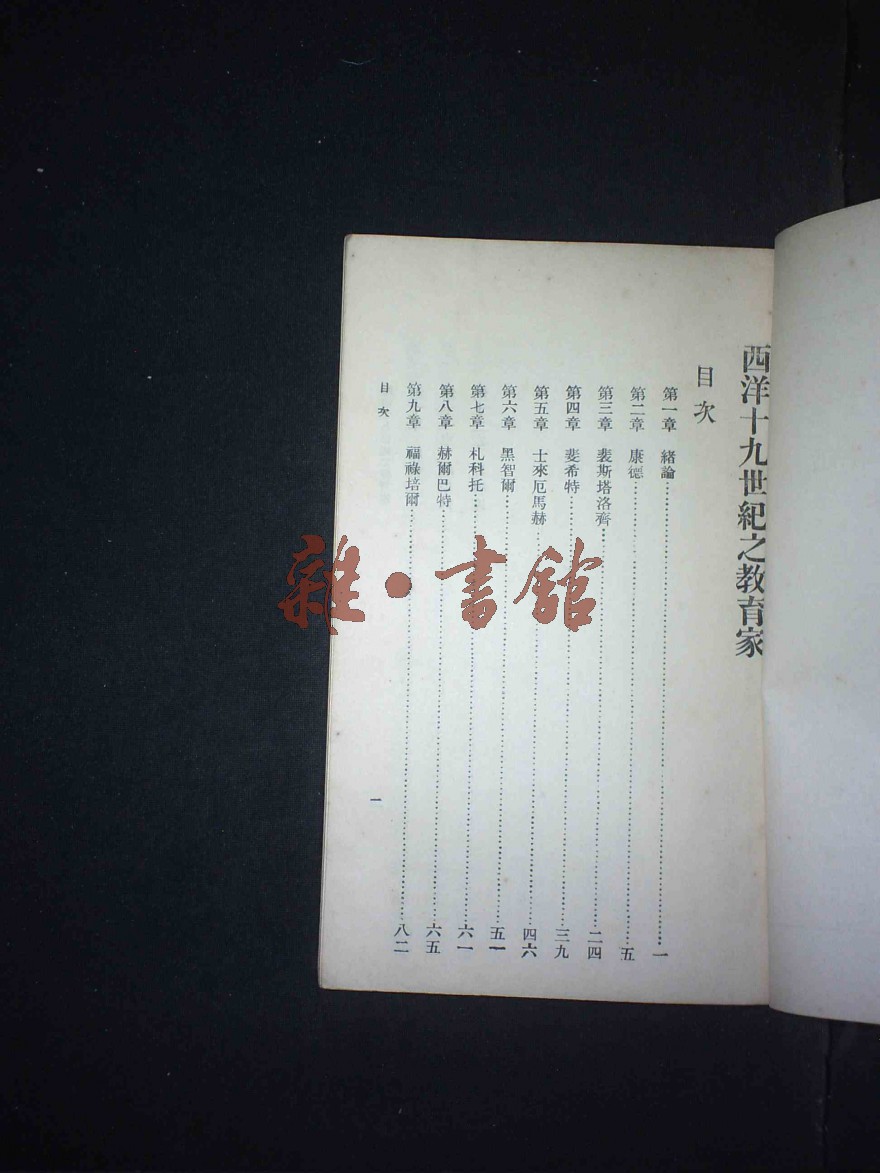 西洋十九世紀之教育家
目次
第一章 緒論……一
第二章 康德……五
第三章 裴斯塔洛齊……二四
第四章 斐希特……三九
第五章 士來厄馬赫……四六
第六章 黑智爾……五一
第七章 札科托……六一
第八章 赫爾巴特……六五
第九章 福祿培爾……八二
目次
一
雜·書館